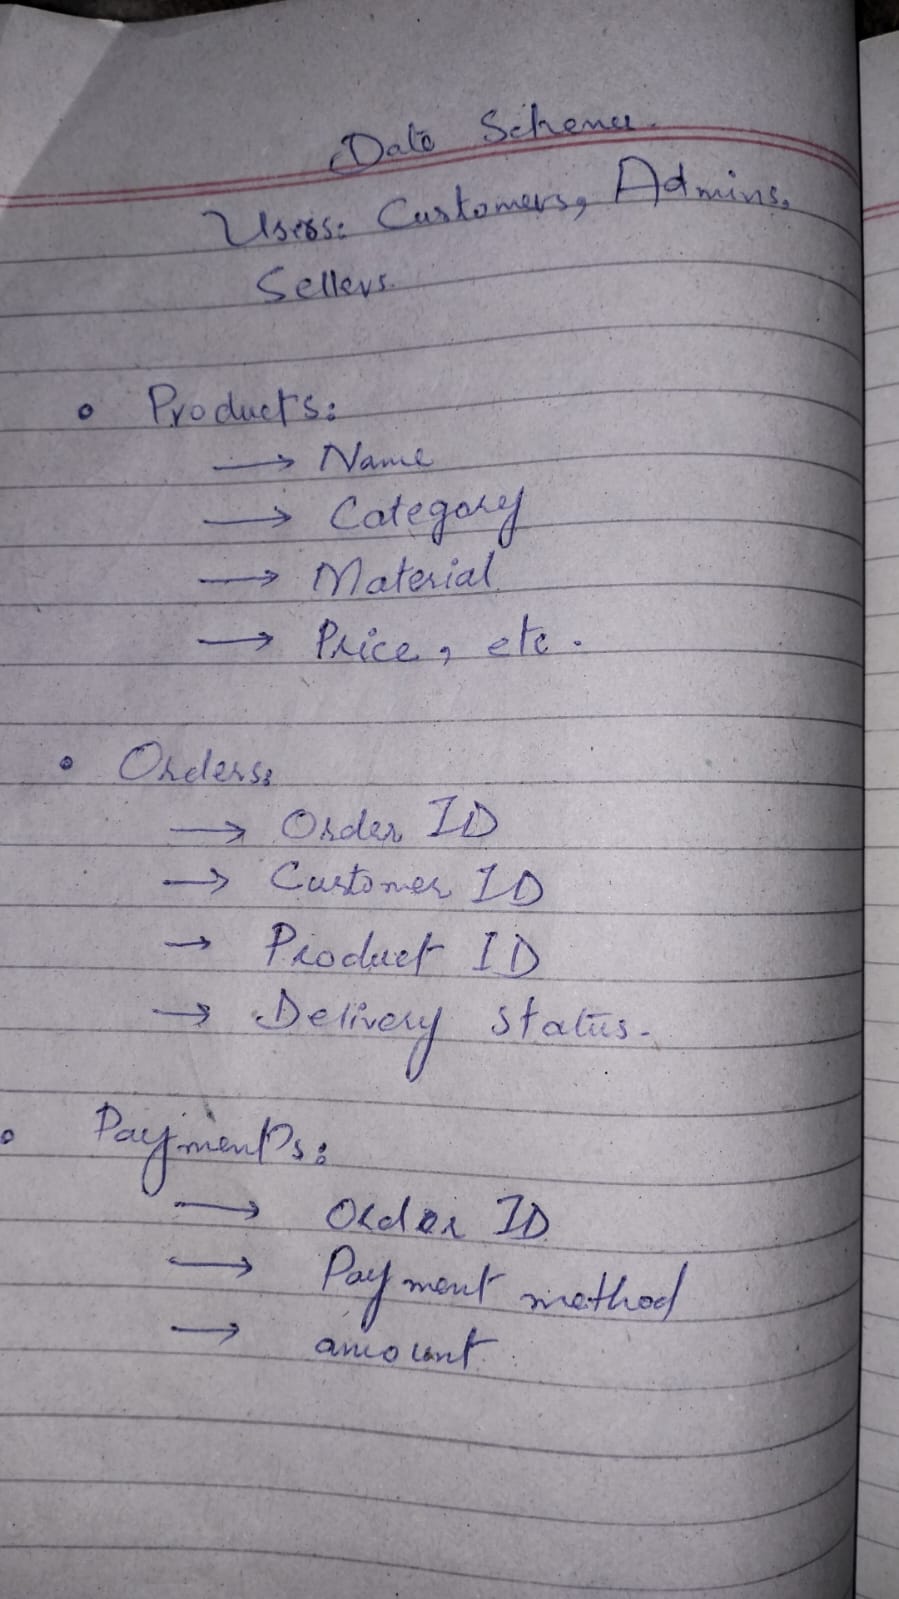 Data Schema.
Users: Customers, Admins,
Sellers.
• Products:
→ Name
→ Category
→ Material
→ Price, etc.
• Orders:
→ Order ID
→ Customer ID
→ Product ID
→ Delivery status.
• Payments:
→ Order ID
→ Payment method
→ amount.